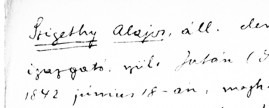 Szigethy Alajos, áll. 
igazgató, szül. Jután (
1842 június 18-án, megh.